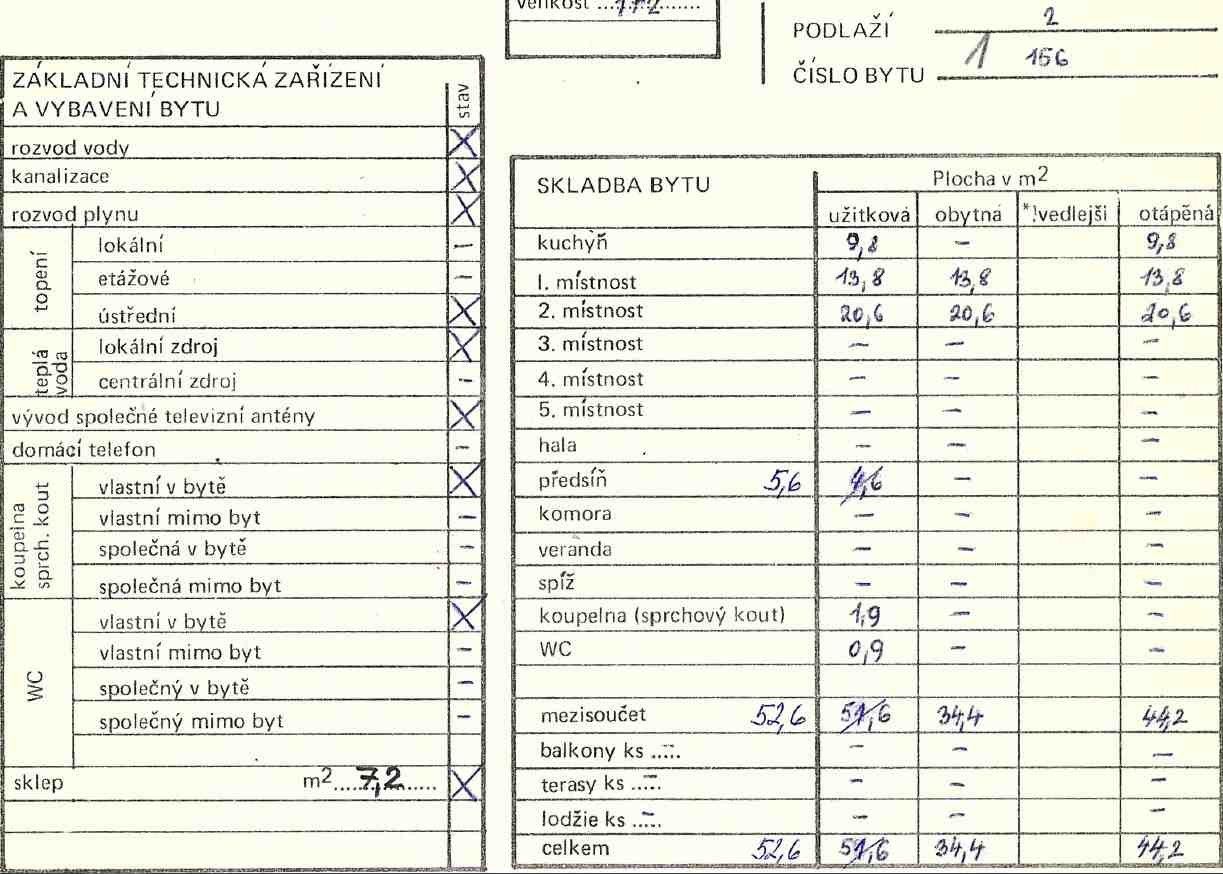 velikost ...1+2.......
PODLAŽÍ 2
ČÍSLO BYTU 1 156
ZÁKLADNÍ TECHNICKÁ ZAŘÍZENÍ
A VYBAVENÍ BYTU
stav
rozvod vody X
kanalizace X
rozvod plynu X
topení
lokální –
etážové –
ústřední X
teplá voda
lokální zdroj X
centrální zdroj –
vývod společné televizní antény X
domácí telefon –
koupelna sprch. kout
vlastní v bytě X
vlastní mimo byt –
společná v bytě –
společná mimo byt –
WC
vlastní v bytě X
vlastní mimo byt –
společný v bytě –
společný mimo byt –
sklep m2....7,2...... X
SKLADBA BYTU Plocha v m2
užitková obytná *!vedlejši otápěná
kuchyň 9,8 – 9,8
I. místnost 13,8 13,8 13,8
2. místnost 20,6 20,6 20,6
3. místnost – – –
4. místnost – – –
5. místnost – – –
hala – – –
předsíň 5,6 4,6 – –
komora – – –
veranda – – –
spíž – – –
koupelna (sprchový kout) 1,9 – –
WC 0,9 – –
mezisoučet 52,6 51,6 34,4 44,2
balkony ks ..–... – – –
terasy ks ..–... – – –
lodžie ks ..–... – – –
celkem 52,6 51,6 34,4 44,2